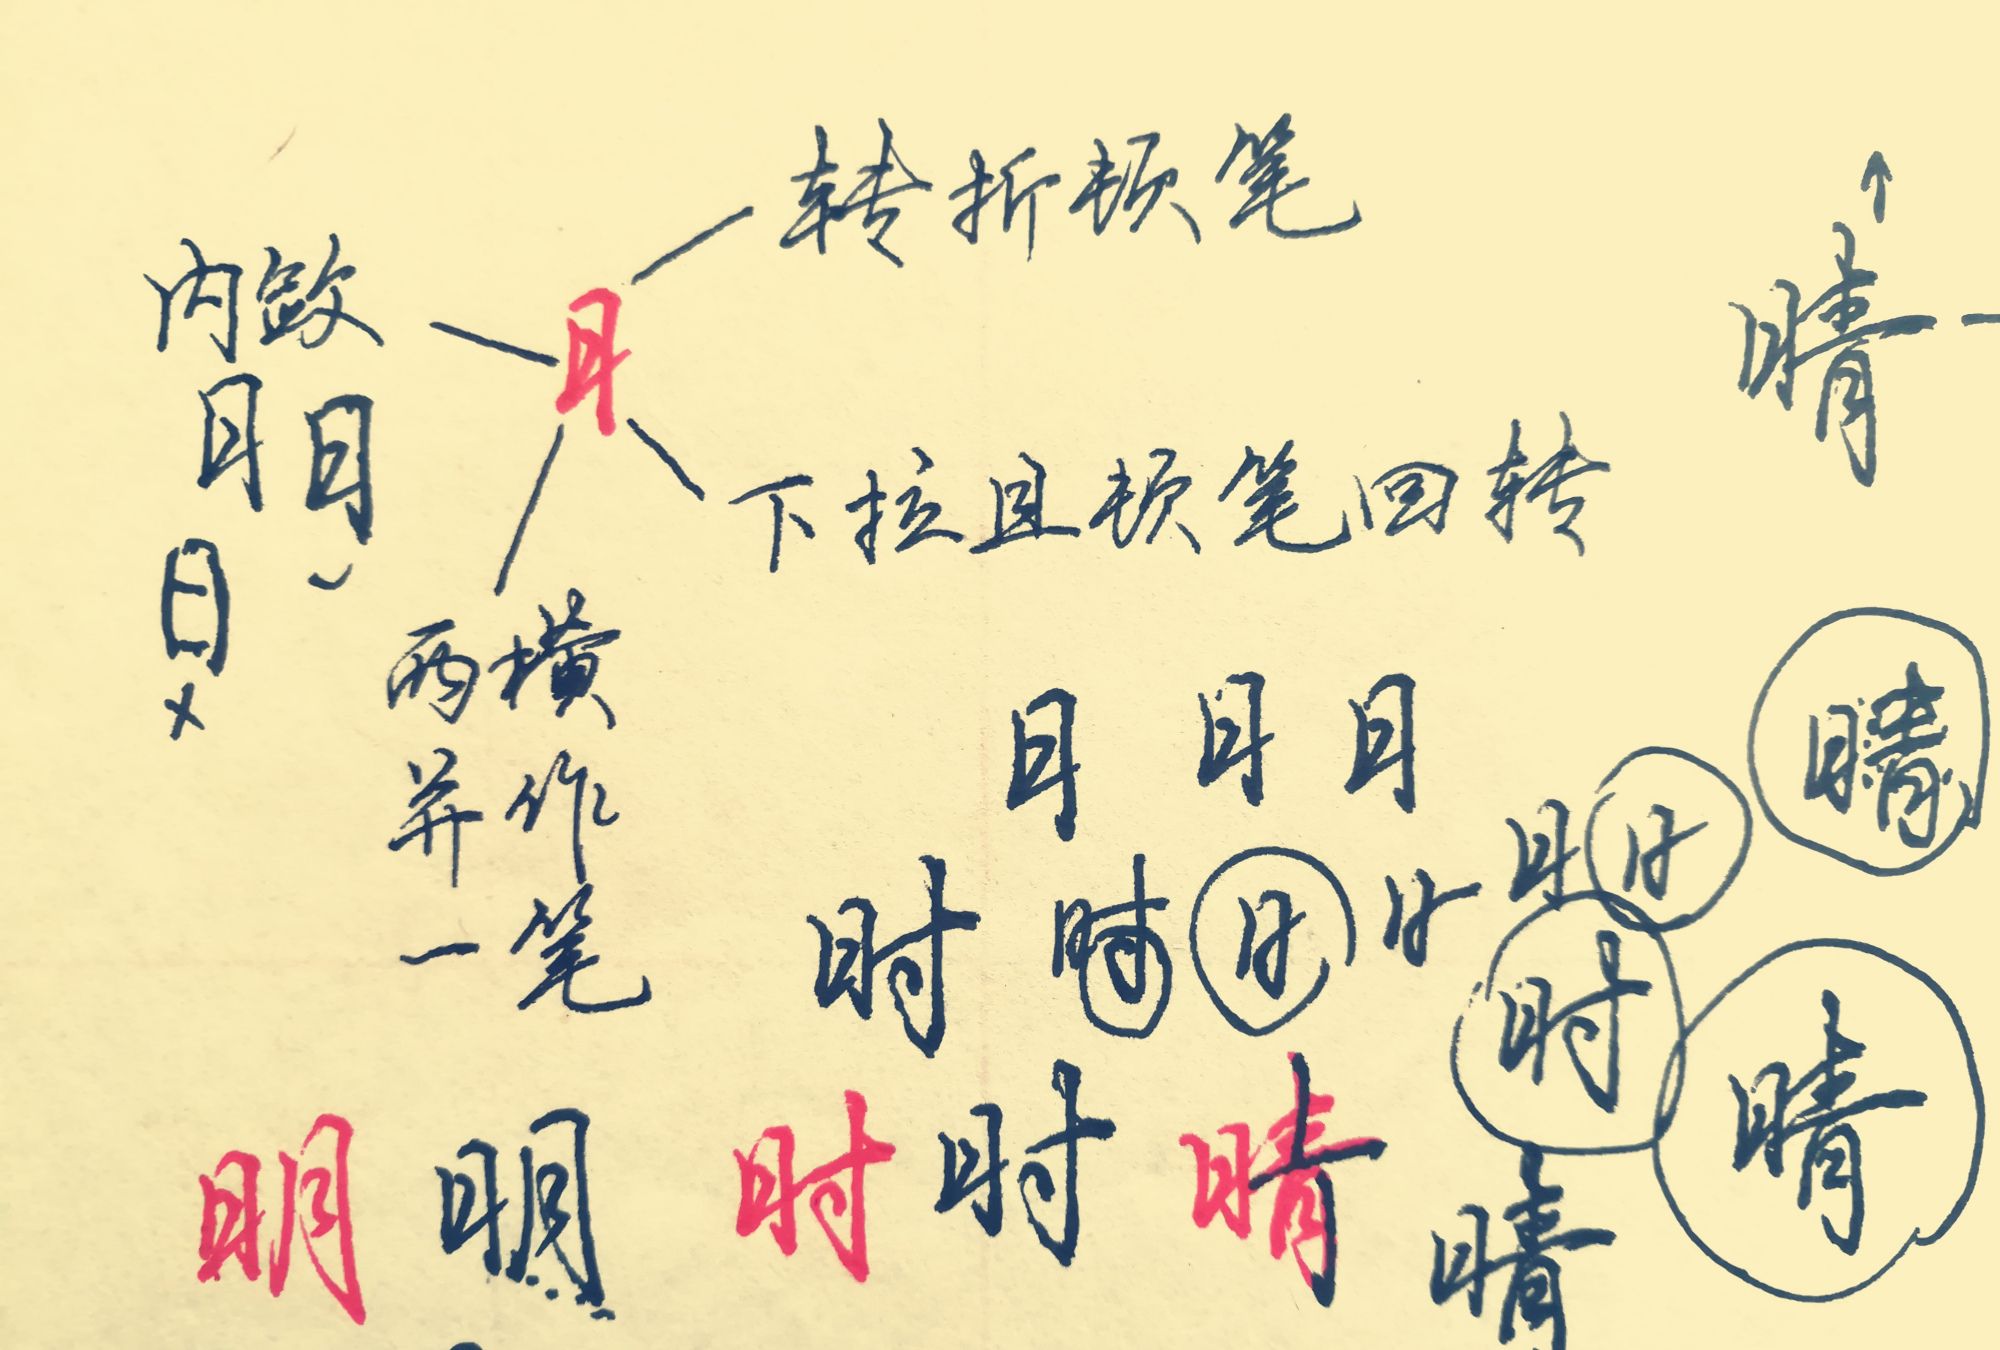 转折顿笔
内敛
日
日 日
日
下拉且顿笔回转
两横
并作
一笔
晴
日 日 日
晴
日 日
时 时 日
时
晴
明 明 时 时 晴
晴